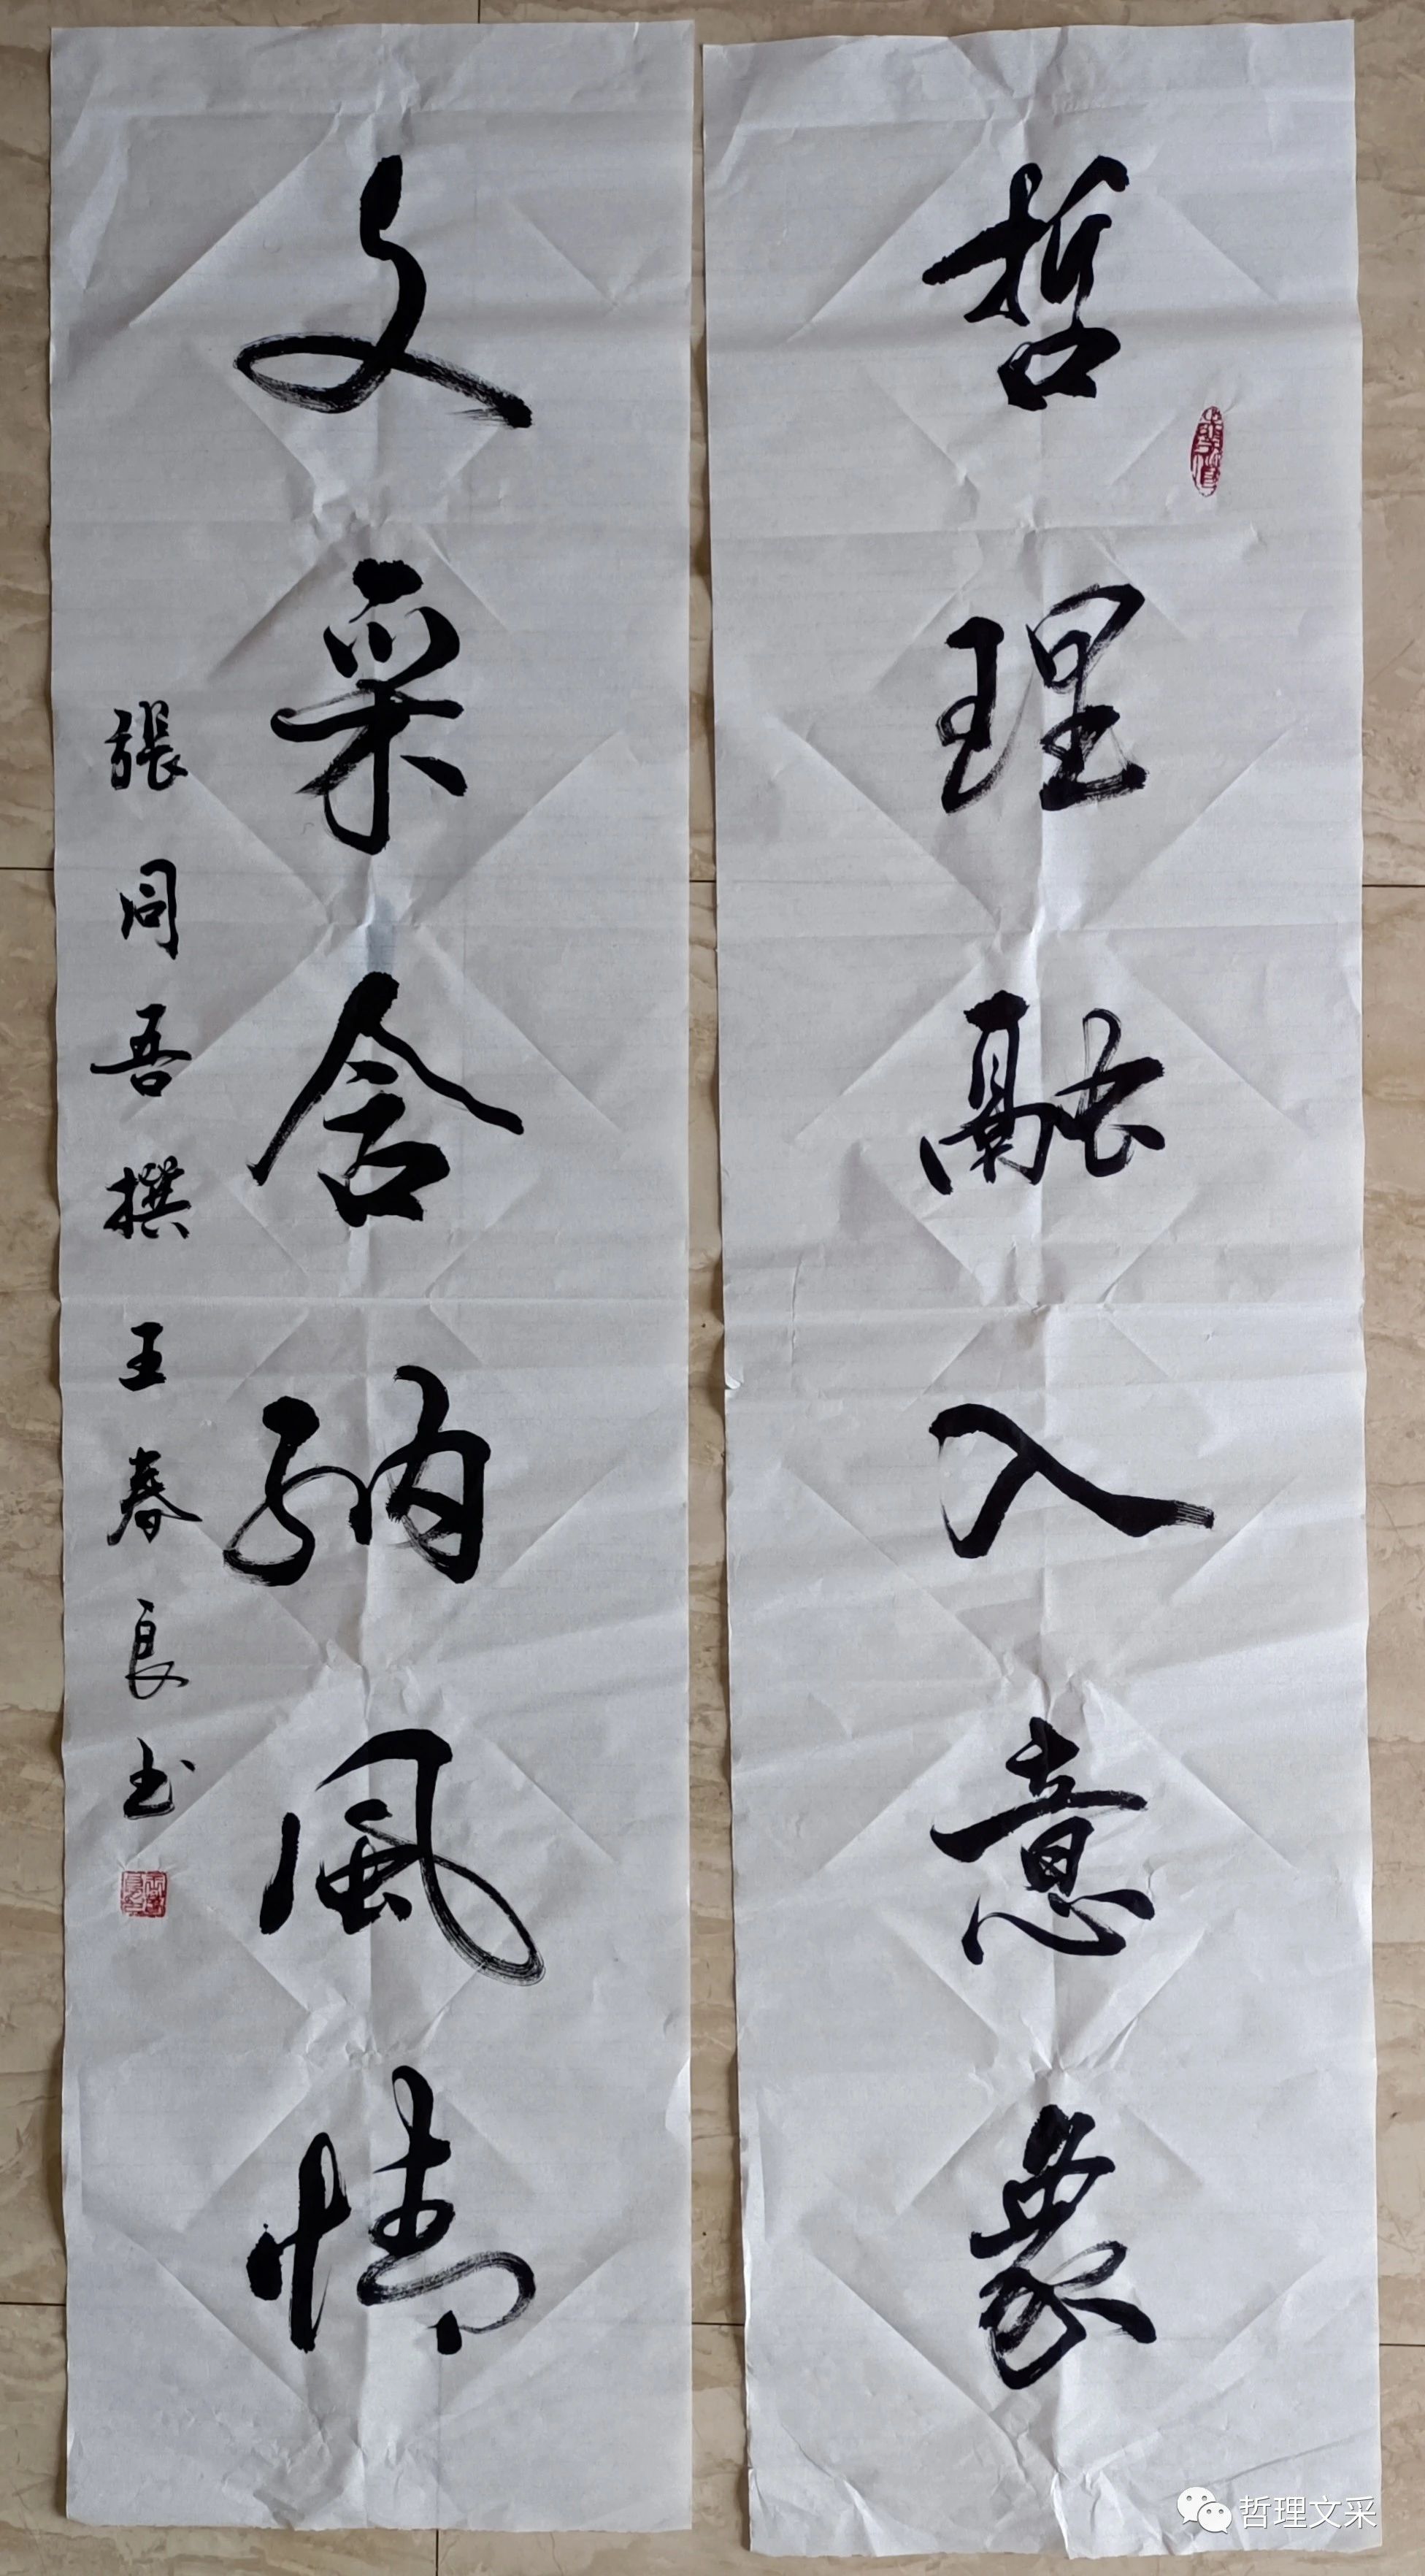 哲理融入意象
文采含納風情
張同吾撰 王春良书
哲理文采